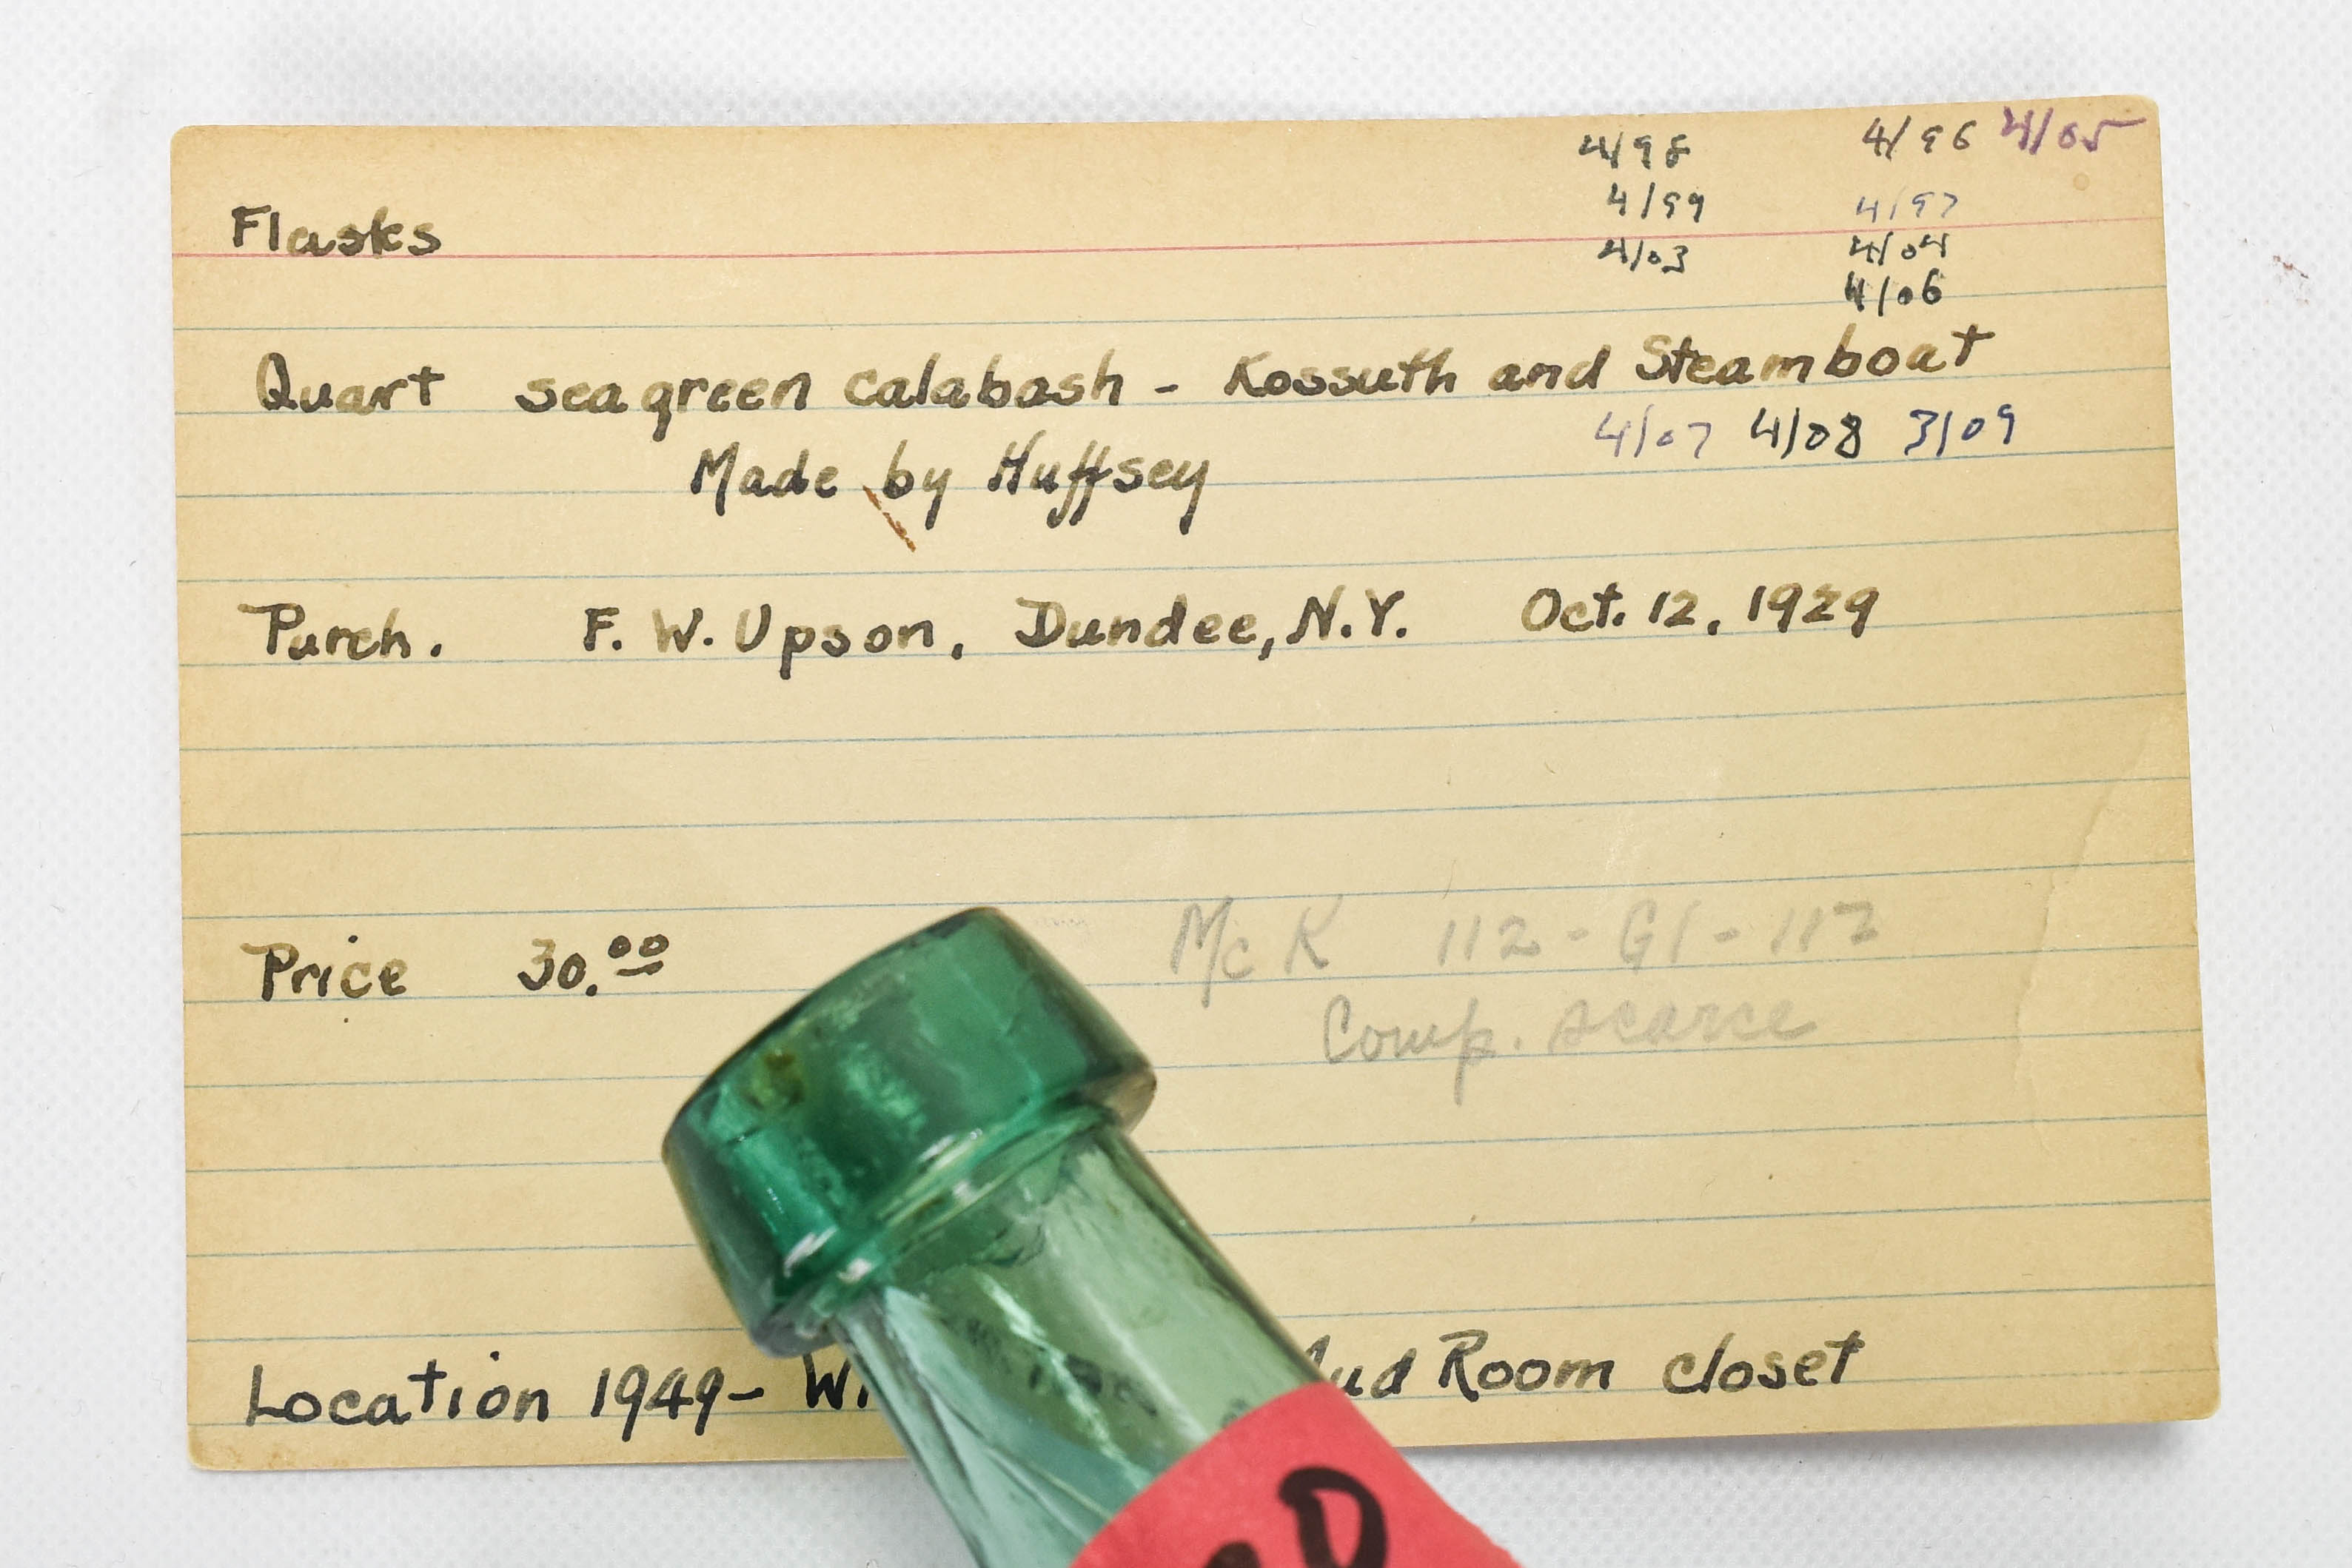 4/98 4/96 4/05
4/99 4/97
Flasks
4/03 4/04
4/06
Quart sea green calabash - Kossuth and Steamboat
4/07 4/08 3/09
Made by Huffsey
Purch. F. W. Upson, Dundee, N.Y. Oct. 12, 1929
Price 30.00
McK 112 - G1 - 112
Comp. scarce
Location 1949- Room closet